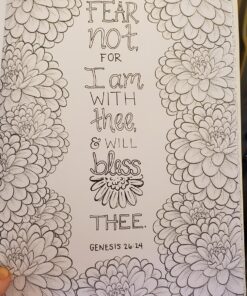 FEAR
not,
FOR
I am
WITH
thee,
& WILL
bless
THEE.
GENESIS 26:24